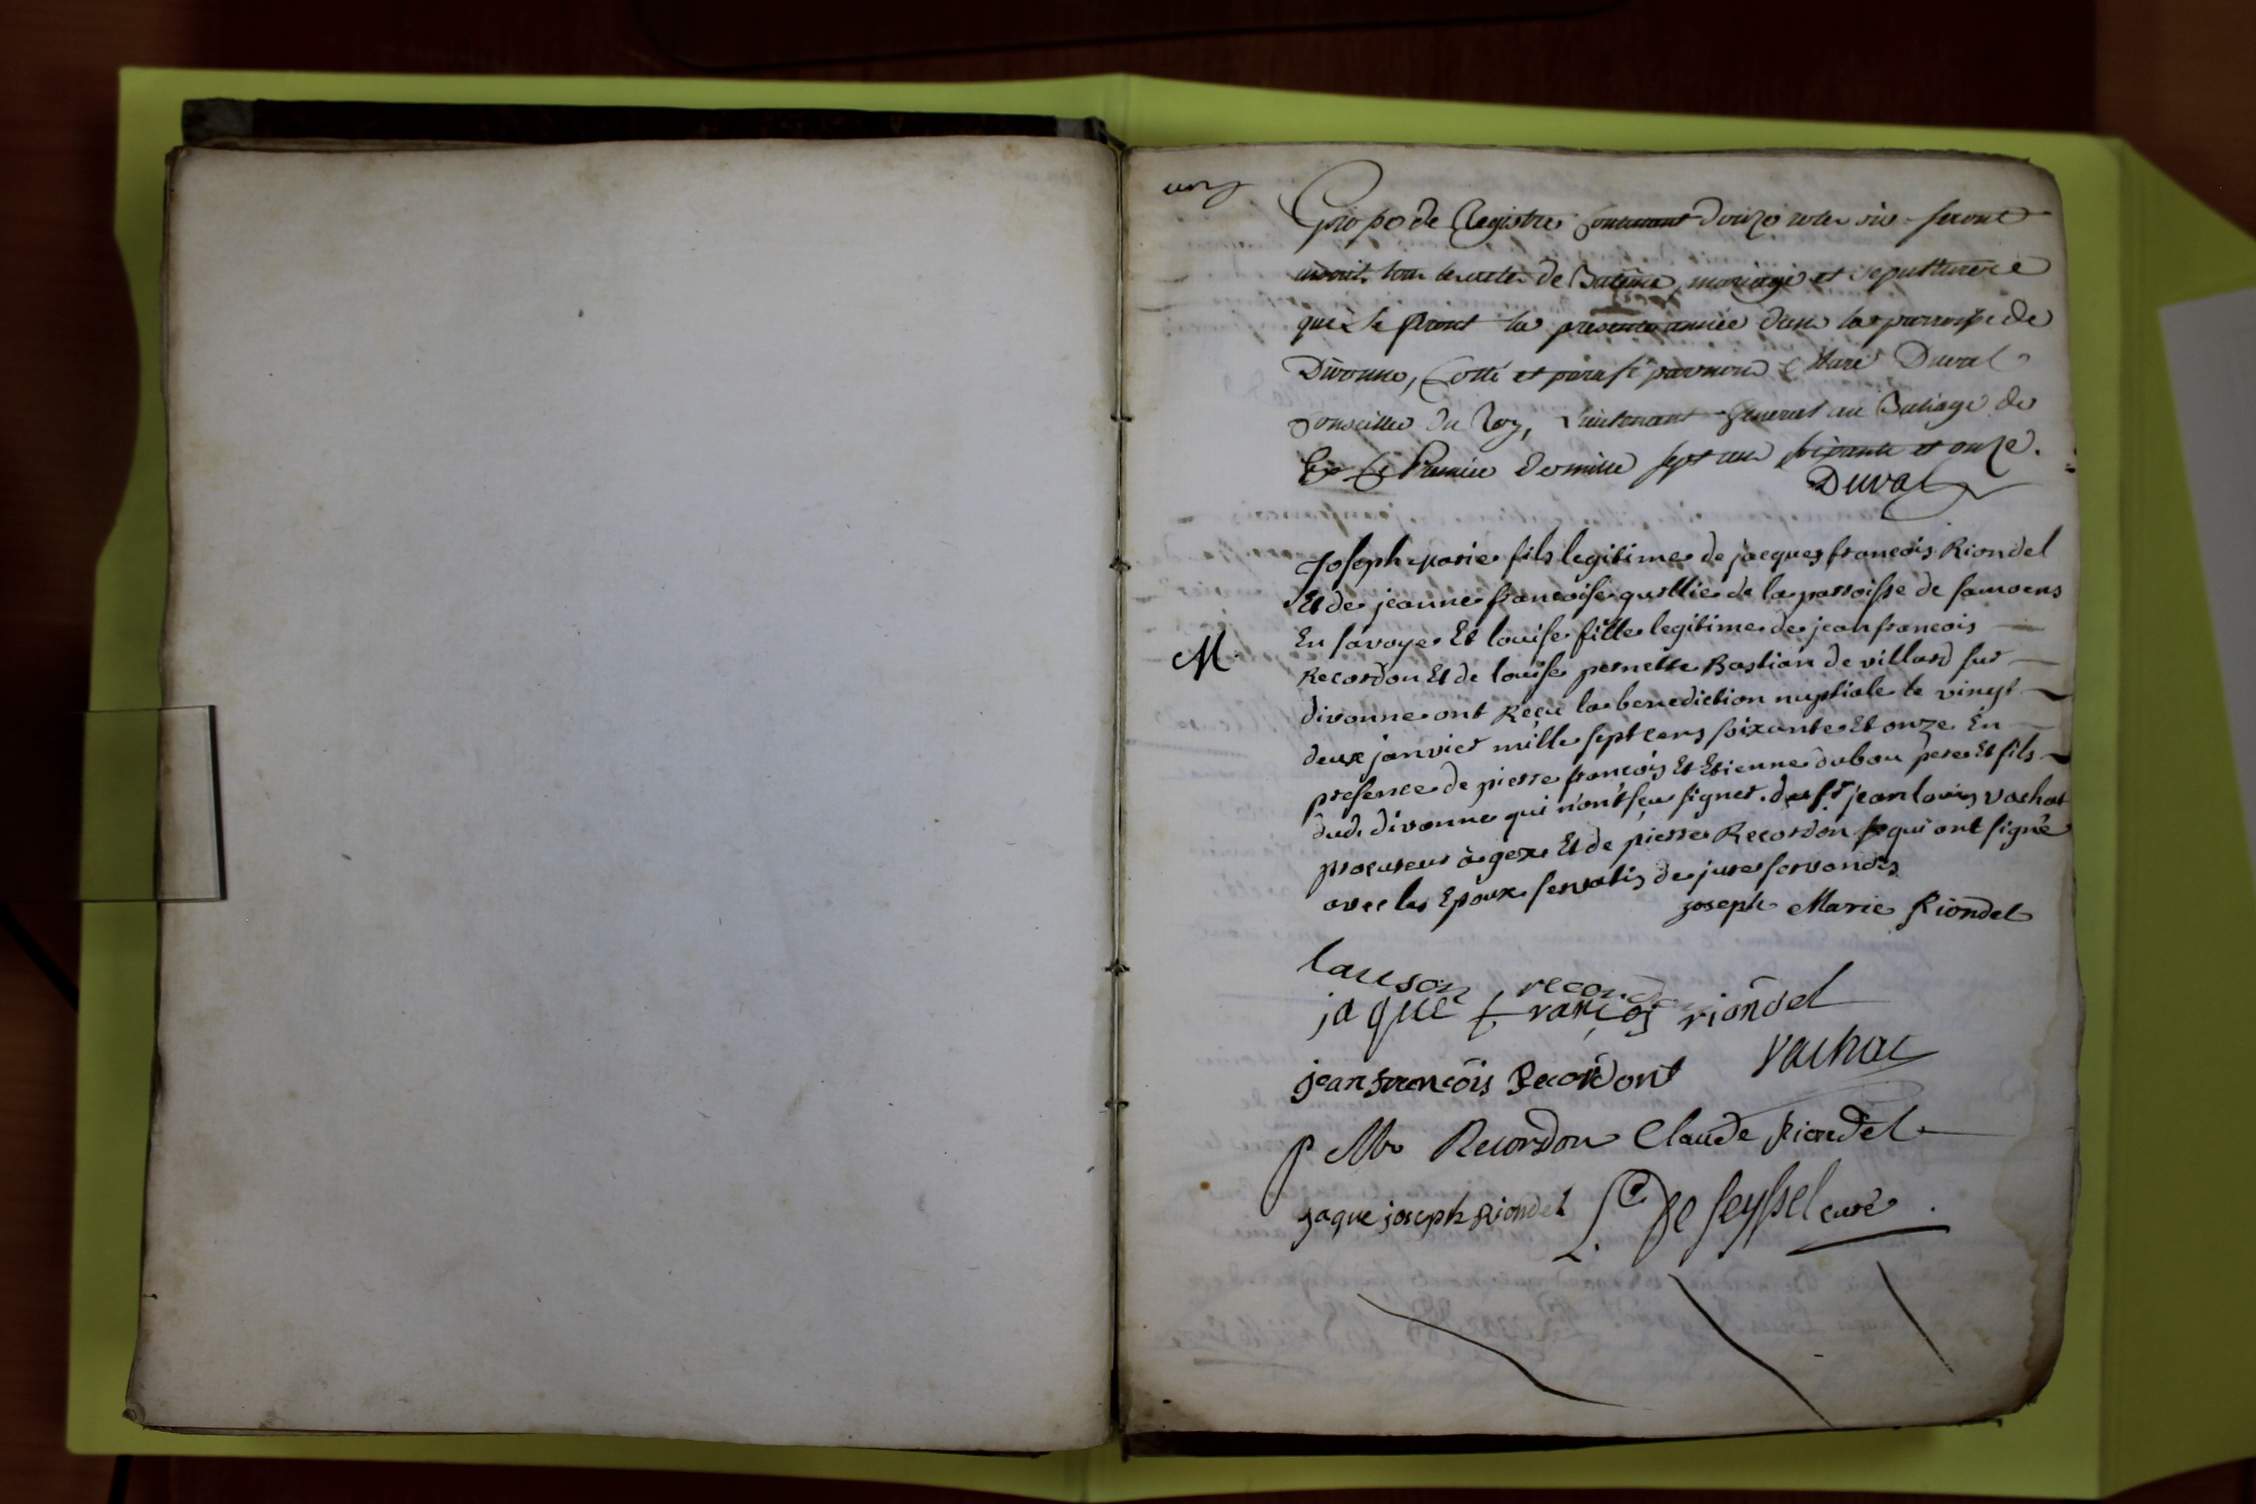 un
Grosso de Registre contenant douze roles où seront
inscrit tous les actes de Batême, mariage et sepulture
qui se feront la presente année dans la parroisse de
Divonne, Cotté et parafé par nous Marc Duval
Conseiller du Roy, Lieutenant General au Baliage de
Gex Le Premier mille sept cens soixante et onze.
Duval
M
Joseph Marie fils legitime de jacques françois Riondel
Et de jeanne françoise de la parroisse de samoens
En savoye Et louise fille legitime de jean francois
Recordon Et de louise pernette Bastian de villard sur
divonne ont Reçu la benediction nuptiale le vingt
deux janvier mille sept cens soixante Et onze En
presence de pierre françois Et Etienne dubou pere Et fils
dud. divonne qui n'ont seu signer. du sr jean louis vachat
procureur à gex Et de pierre Recordon qui ont signé
avec les Epoux servatis de jure servandis
joseph Marie Riondel
louison recordon
jaque françois riondel
vachat
jean françois Recordont
p Recordon Claude Riondel
jaque joseph Riondel De Seyssel curé